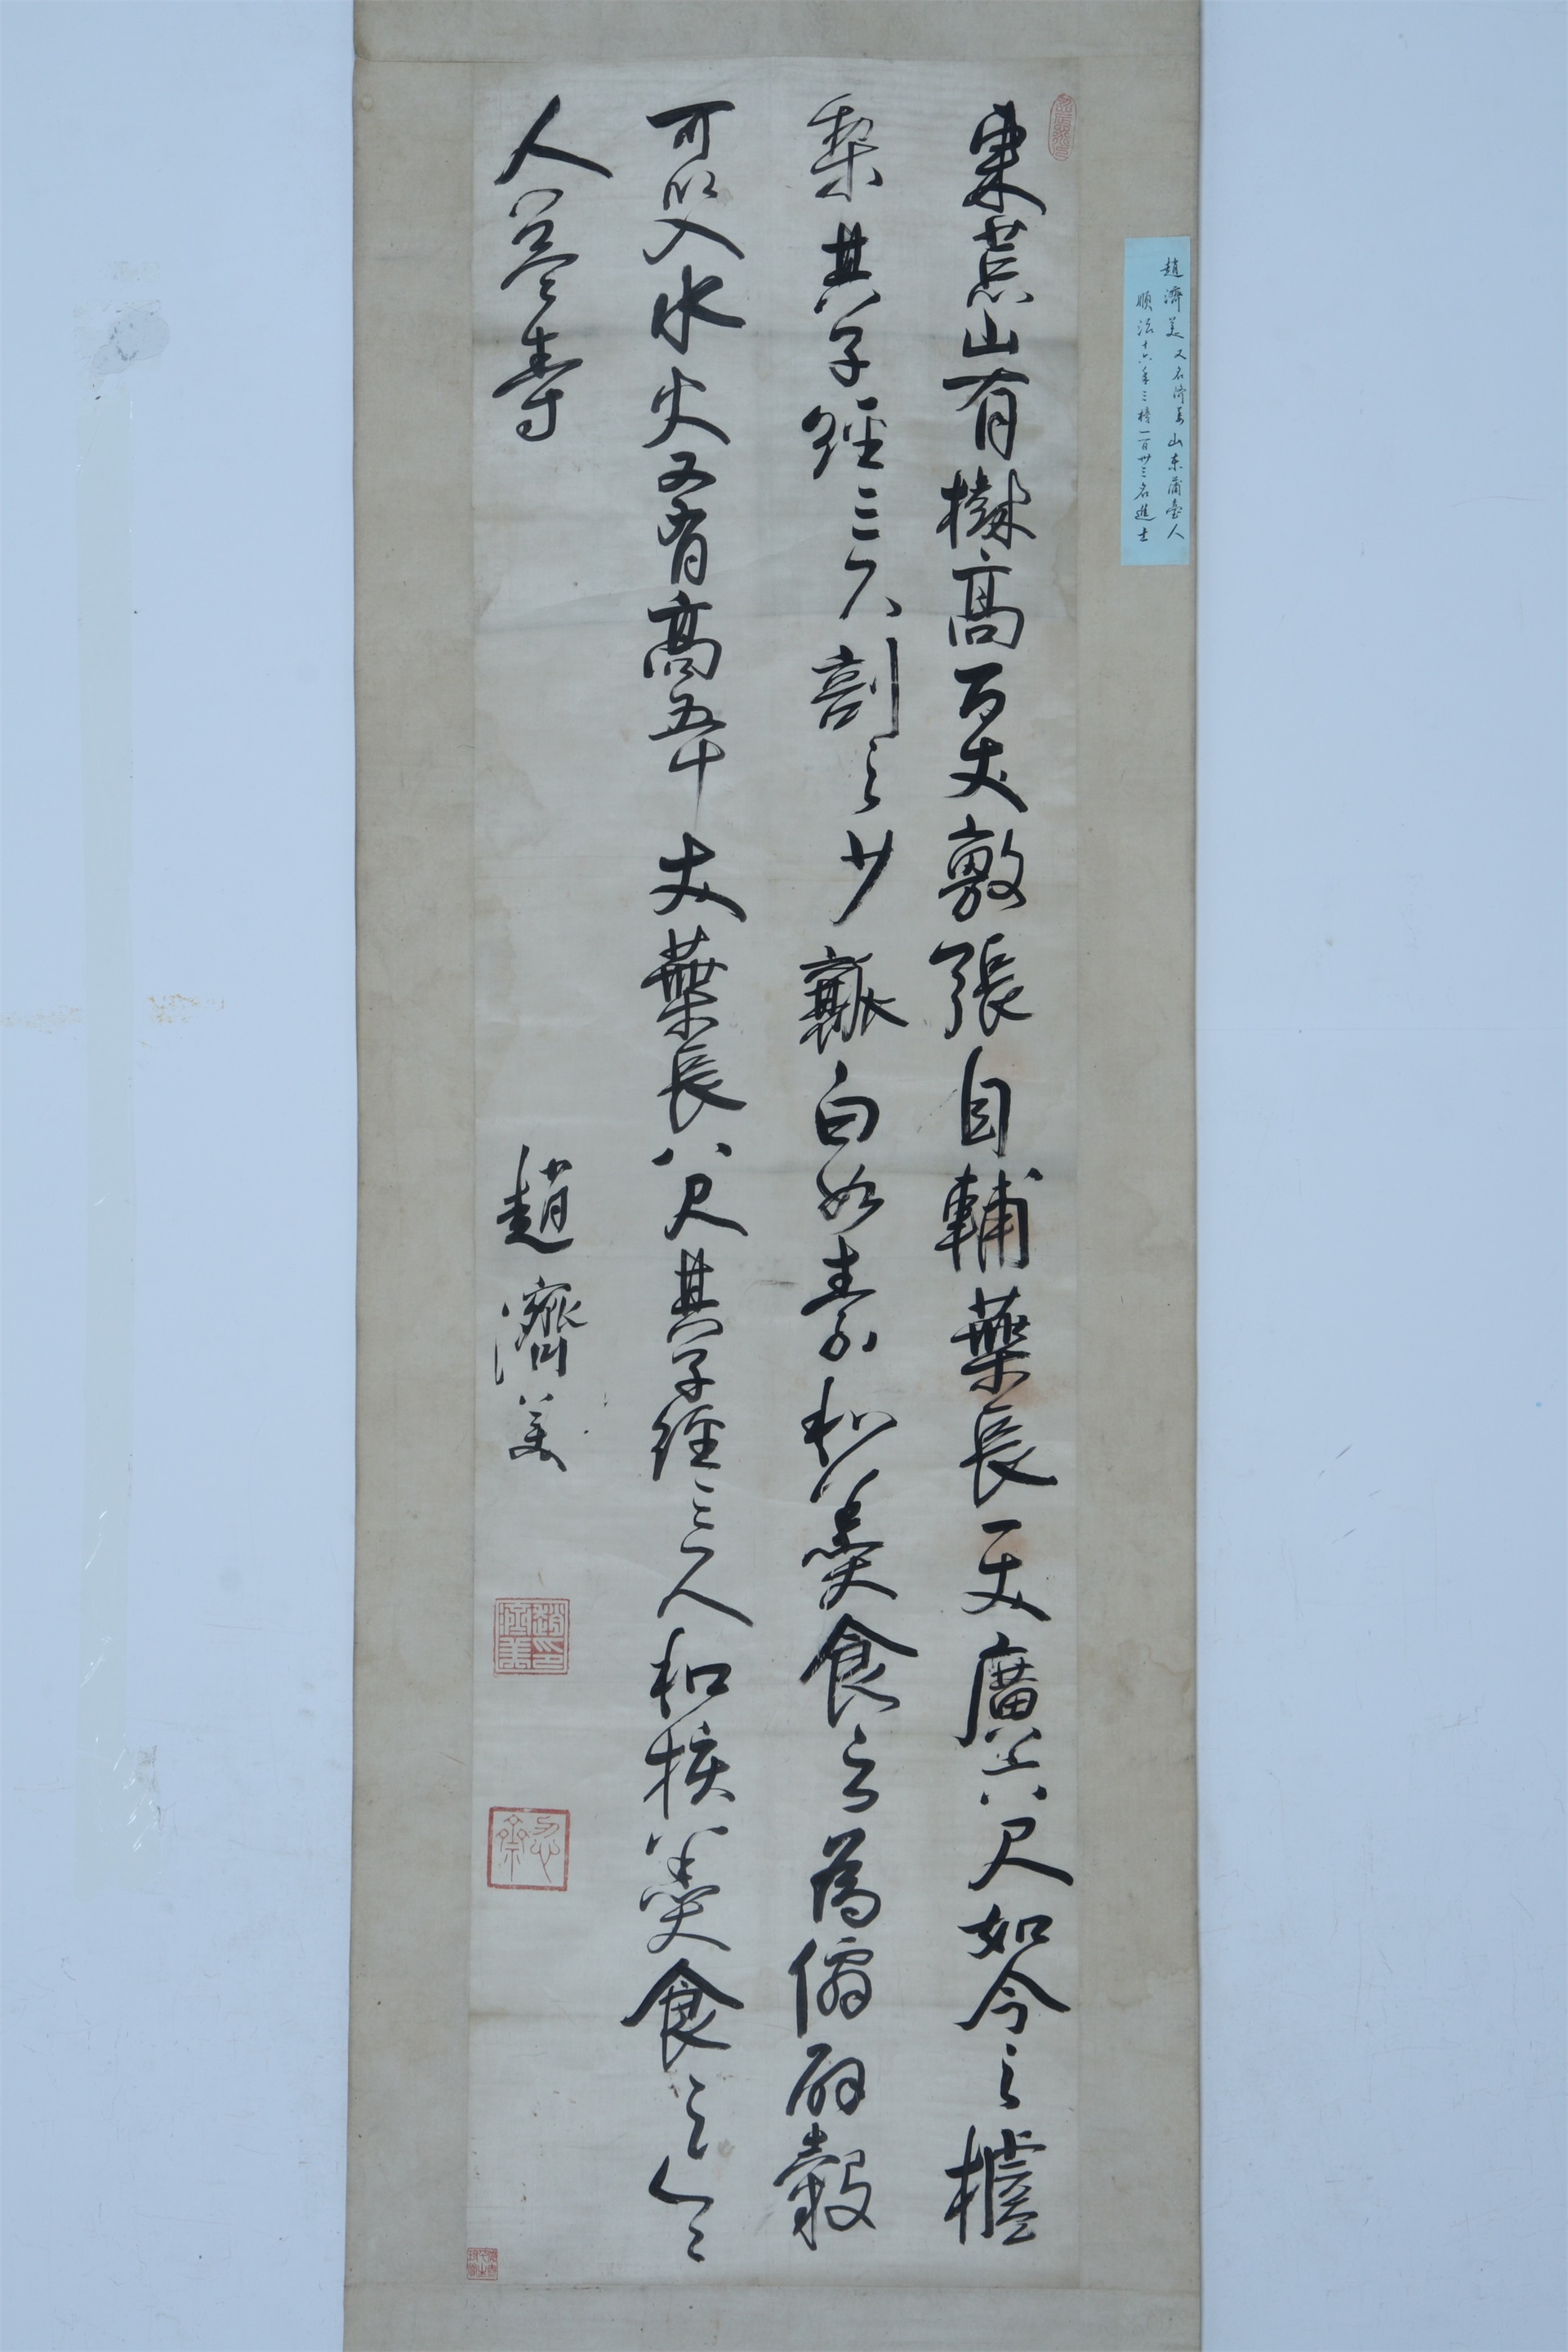 東荒山有樹高百丈敷張自輔葉長一丈廣六尺如今之樝
梨其子徑三尺剖之少瓤白如素和羹食之為僊辟穀
可以入水火又有高五十丈葉長八尺其子徑三尺和核羹食之令
人益壽
趙濟美
趙濟美印
趙濟美又名濟美山東蒲臺人
順治十六年三榜一百卅三名進士